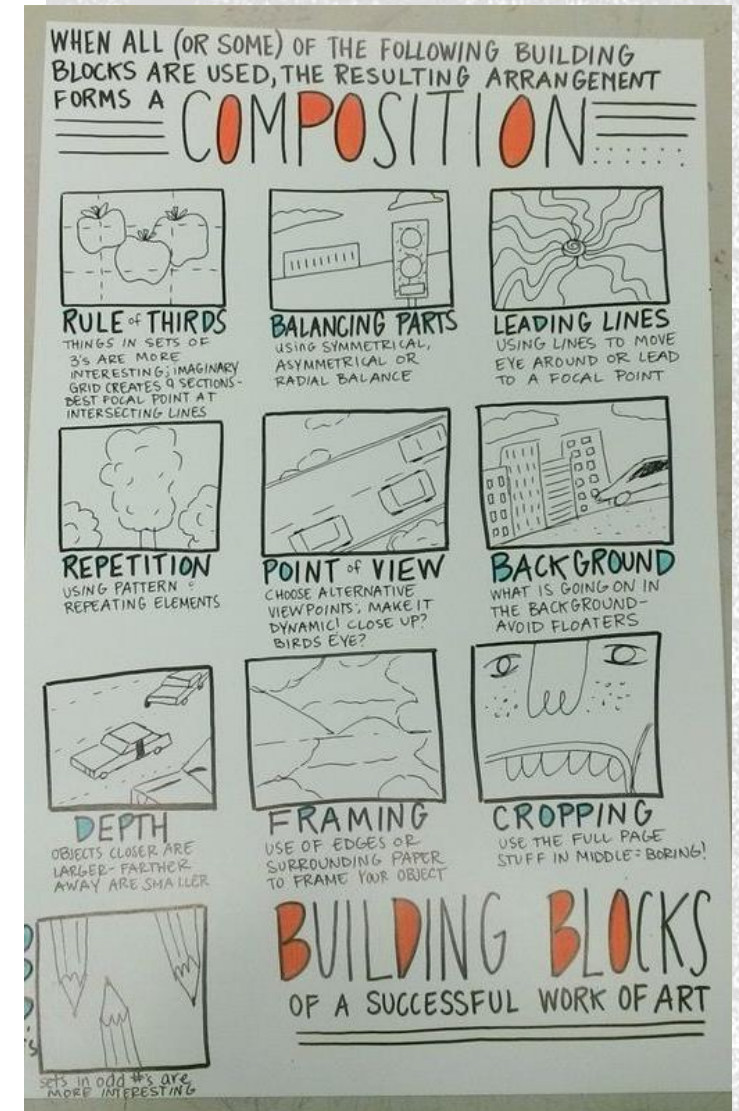 WHEN ALL (OR SOME) OF THE FOLLOWING BUILDING
BLOCKS ARE USED, THE RESULTING ARRANGEMENT
FORMS A COMPOSITION
RULE of THIRDS
THINGS IN SETS OF
3'S ARE MORE
INTERESTING; IMAGINARY
GRID CREATES 9 SECTIONS-
BEST FOCAL POINT AT
INTERSECTING LINES
BALANCING PARTS
USING SYMMETRICAL,
ASYMMETRICAL OR
RADIAL BALANCE
LEADING LINES
USING LINES TO MOVE
EYE AROUND OR LEAD
TO A FOCAL POINT
REPETITION
USING PATTERN &
REPEATING ELEMENTS
POINT of VIEW
CHOOSE ALTERNATIVE
VIEWPOINTS; MAKE IT
DYNAMIC! CLOSE UP?
BIRDS EYE?
BACKGROUND
WHAT IS GOING ON IN
THE BACKGROUND-
AVOID FLOATERS
DEPTH
OBJECTS CLOSER ARE
LARGER- FARTHER
AWAY ARE SMALLER
FRAMING
USE OF EDGES OR
SURROUNDING PAPER
TO FRAME YOUR OBJECT
CROPPING
USE THE FULL PAGE
STUFF IN MIDDLE = BORING!
sets in odd #'s are
MORE INTERESTING
BUILDING BLOCKS
OF A SUCCESSFUL WORK OF ART